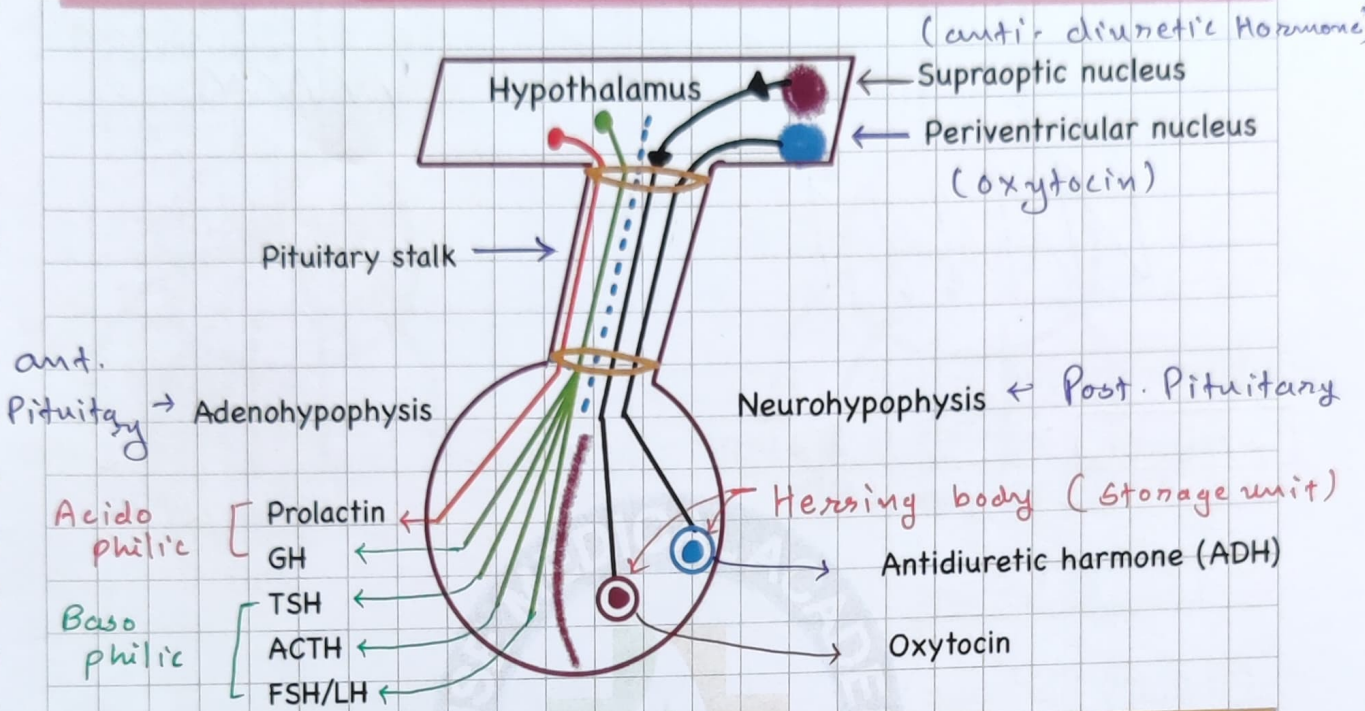 (anti- diuretic Hormone)
Hypothalamus
Supraoptic nucleus
Periventricular nucleus
(oxytocin)
Pituitary stalk
ant.
Pituitay → Adenohypophysis
Neurohypophysis ← Post. Pituitary
Acido
philic
Prolactin
GH
Herring body (Storage unit)
Antidiuretic harmone (ADH)
Baso
philic
TSH
ACTH
FSH/LH
Oxytocin